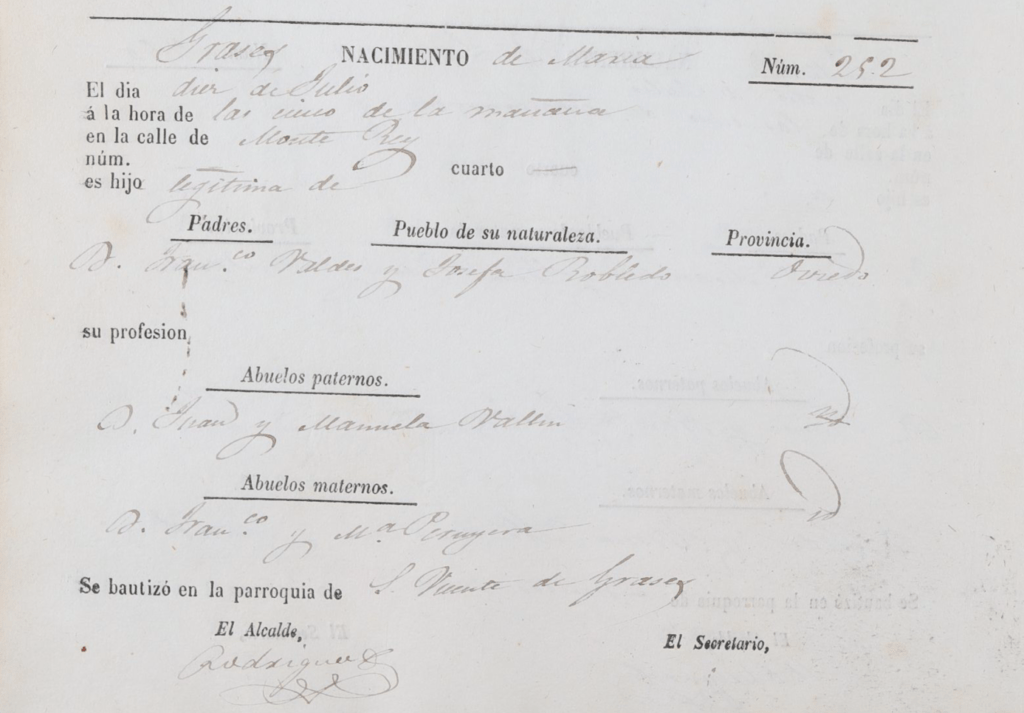 Grases NACIMIENTO de Maria Núm. 252
El dia diez de Julio
á la hora de las cinco de la mañana
en la calle de Monte Rey
núm. cuarto
es hijo legitima de
Padres. Pueblo de su naturaleza. Provincia.
D. Fran.co Valdes y Josefa Robledo Oviedo
su profesion,
Abuelos paternos.
D. Juan y Manuela Vallin id
Abuelos maternos.
D. Fran.co y M.a Peruyera id
Se bautizó en la parroquia de S. Vicente de Grases
El Alcalde, El Secretario,
Rodriguez